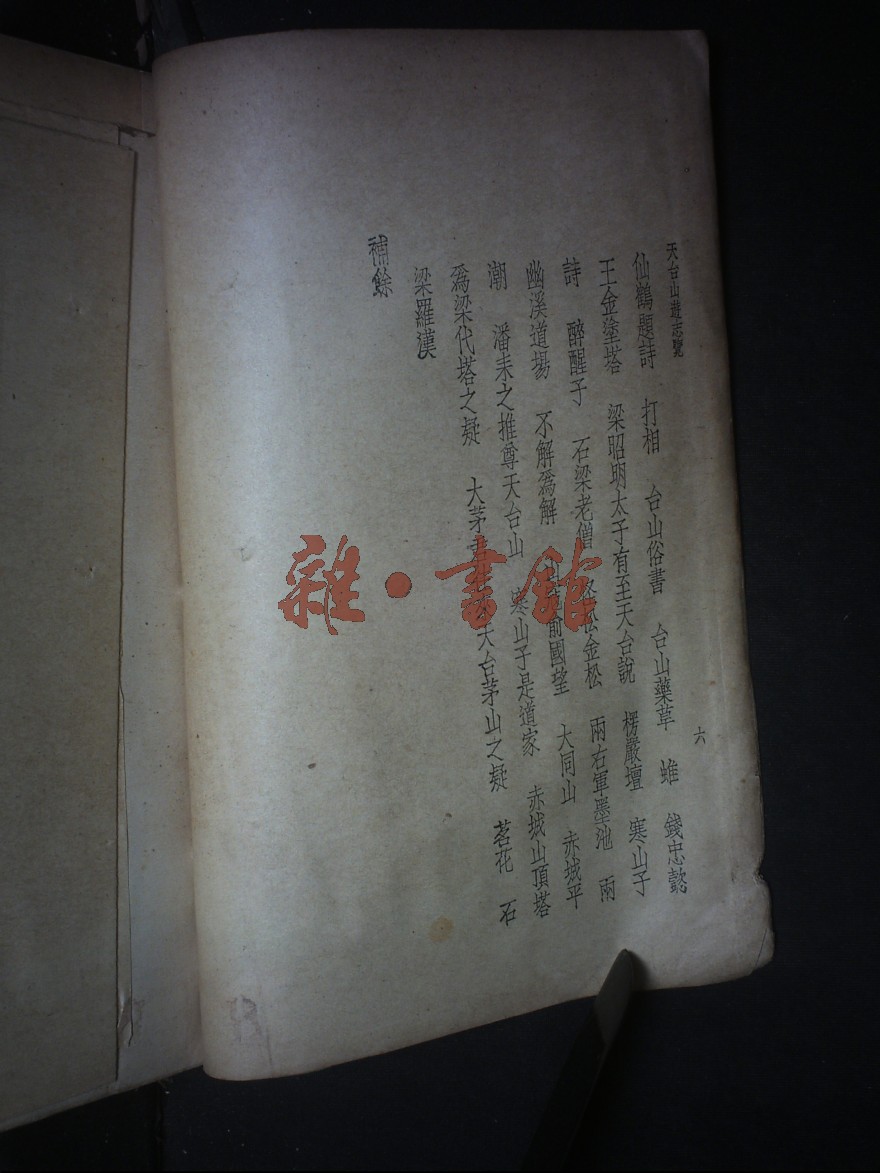 天台山遊志覽
六
仙鶴題詩　打相　台山俗書　台山藥草　雄　錢忠懿
王金塗塔　梁昭明太子有至天台說　楞嚴壇　寒山子
詩　醉醒子　石梁老僧　松金松　兩右軍墨池　兩
幽溪道場　不解爲解　前國望　大同山　赤城平
潮　潘耒之推尊天台山　寒山子是道家　赤城山頂塔
爲梁代塔之疑　大茅　天台茅山之疑　茗花　石
梁羅漢
補餘
雜·書館